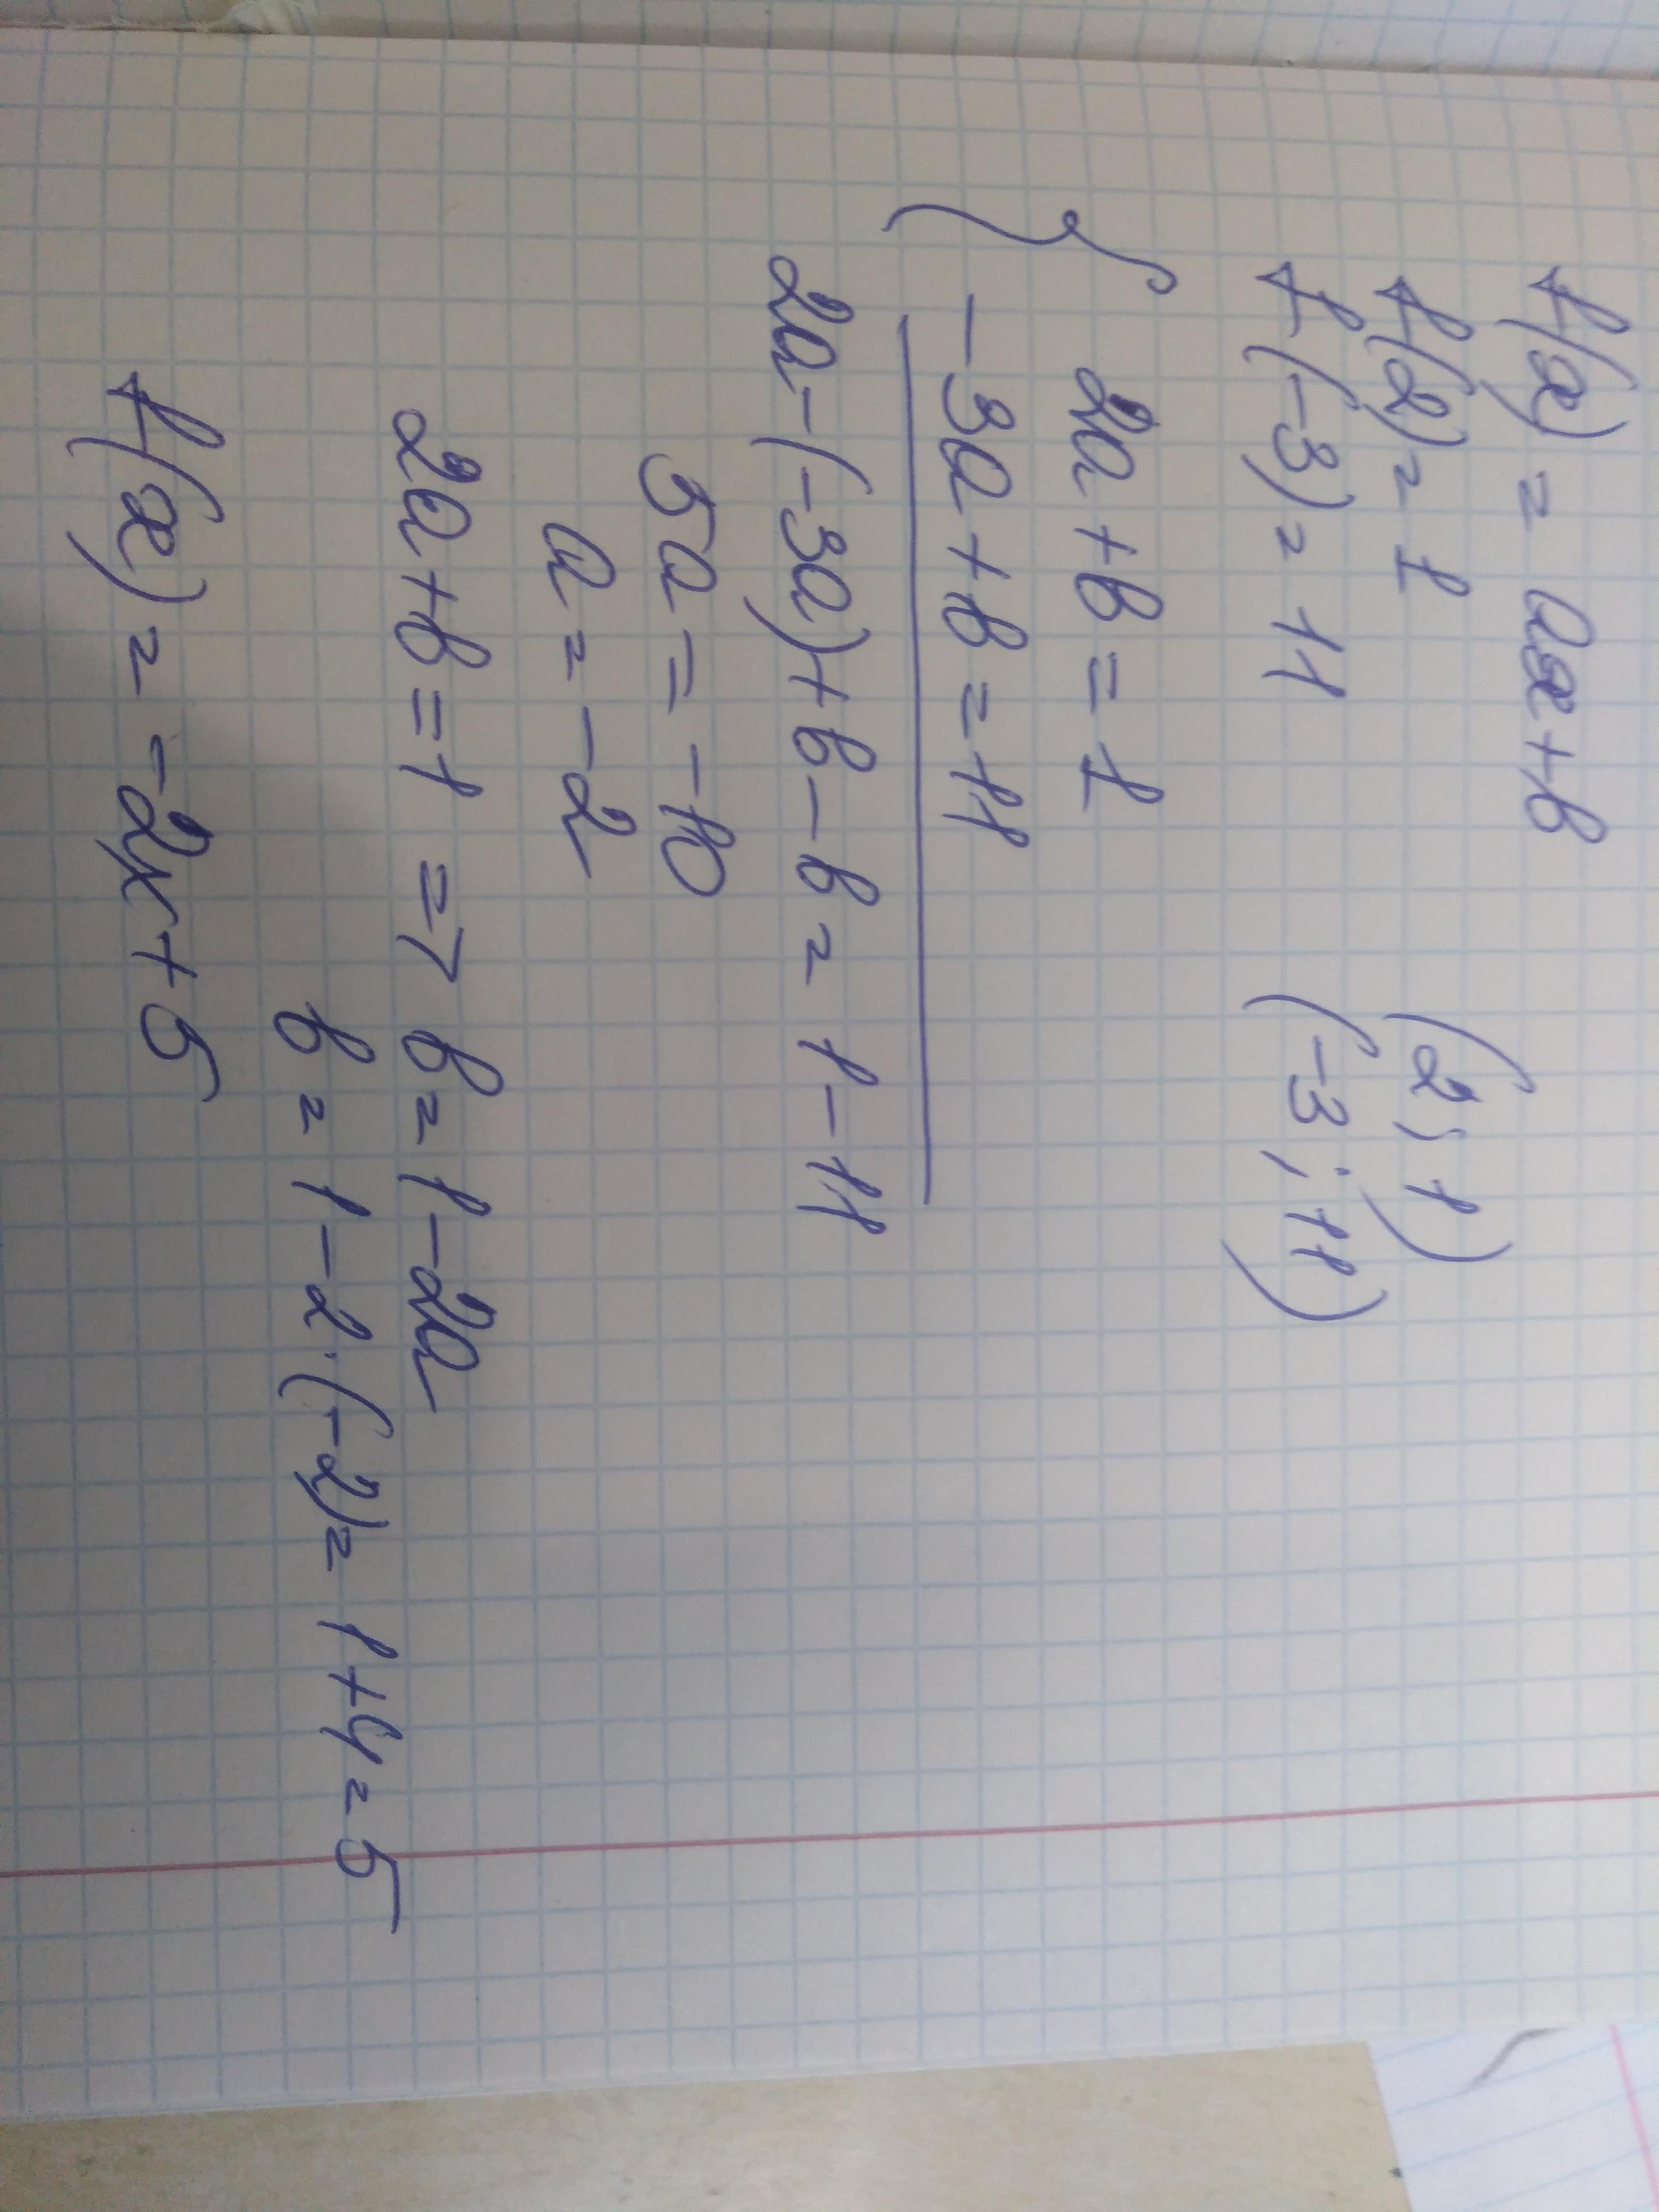 f(x) = ax+b
f(2) = 1 (2; 1)
f(-3) = 11 (-3; 11)
{ 2a+b = 1
-3a+b = 11
2a-(-3a)+b-b = 1-11
5a = -10
a = -2
2a+b=1 => b = 1-2a
b = 1-2·(-2) = 1+4 = 5
f(x) = -2x+5